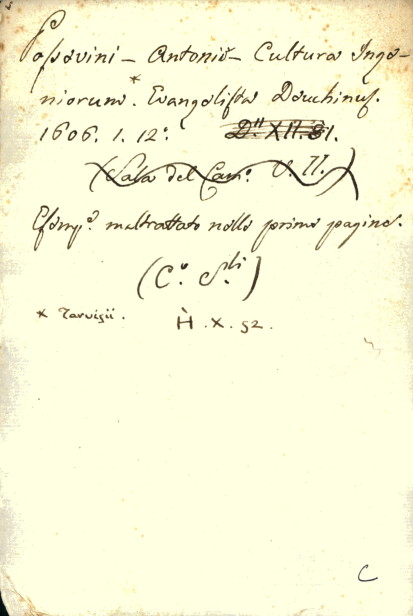 Possevini - Antonio - Cultura Inge-
niorum.* Evangelista Deuchinus.
1606. 1. 12º.
D.'' XII. 81.
(Sala del Cam.º V. II.)
Esemp.º maltrattato nelle prime pagine.
(C.º S.li)
* Tarvisii.
H . X . 52.
C